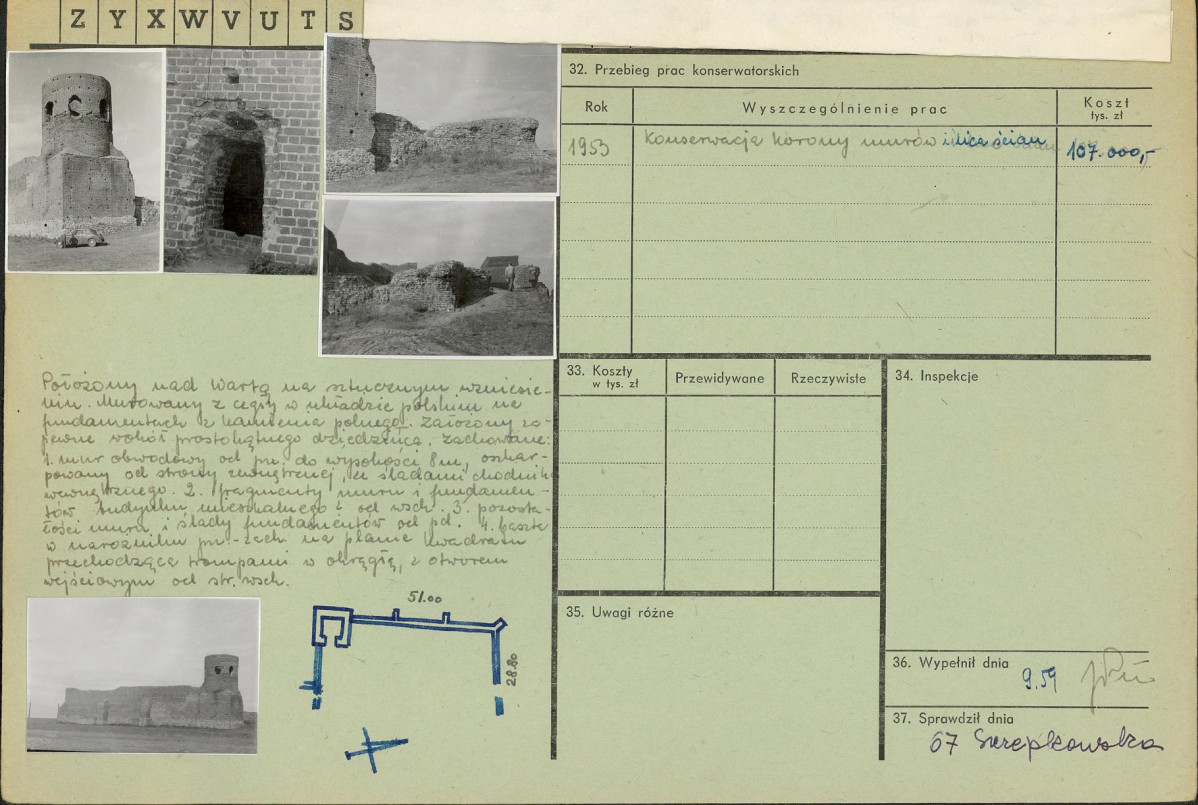 Z Y X W V U T S
32. Przebieg prac konserwatorskich
Rok
Wyszczególnienie prac
Koszt
tys. zł
1953
Konserwacja korony murów i lica ścian
107.000,-
33. Koszty
w tys. zł
Przewidywane
Rzeczywiste
34. Inspekcje
Położony nad Wartą na sztucznym wzniesie-
niu. Murowany z cegły w układzie polskim na
fundamentach z kamienia polnego. Założony za-
pewne wokół prostokątnego dziedzińca. Zachowane:
1. mur obwodowy od pn. do wysokości 8m, oszkar-
powany od strony zewnętrznej, ze śladami chodnika
wewnętrznego. 2. fragmenty muru i fundamen-
tów budynku mieszkalnego od wsch. 3. pozosta-
łości muru i ślady fundamentów od pd. 4. baszta
w narożniku pn.-zach na planie kwadratu
przechodząca trompami w okrągłą, z otworem
wejściowym od str. wsch.
51.00
28.80
35. Uwagi różne
36. Wypełnił dnia
9.59
37. Sprawdził dnia
67